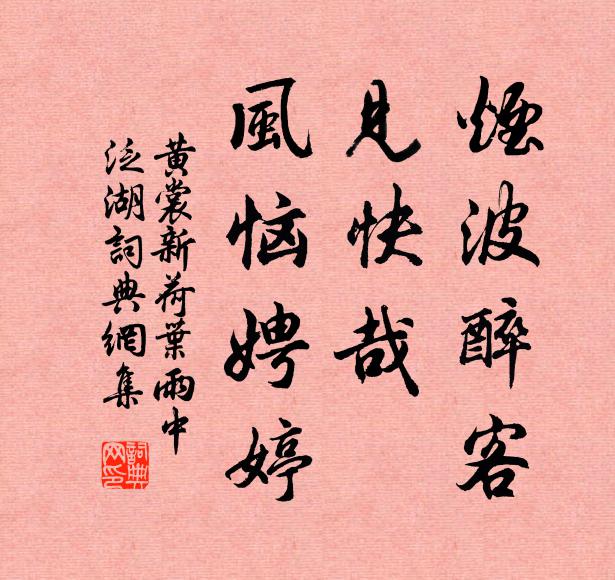 煙波醉客
見快哉
風恼娉婷
黄裳新荷葉雨中
泛湖詞典網集
詞典網印